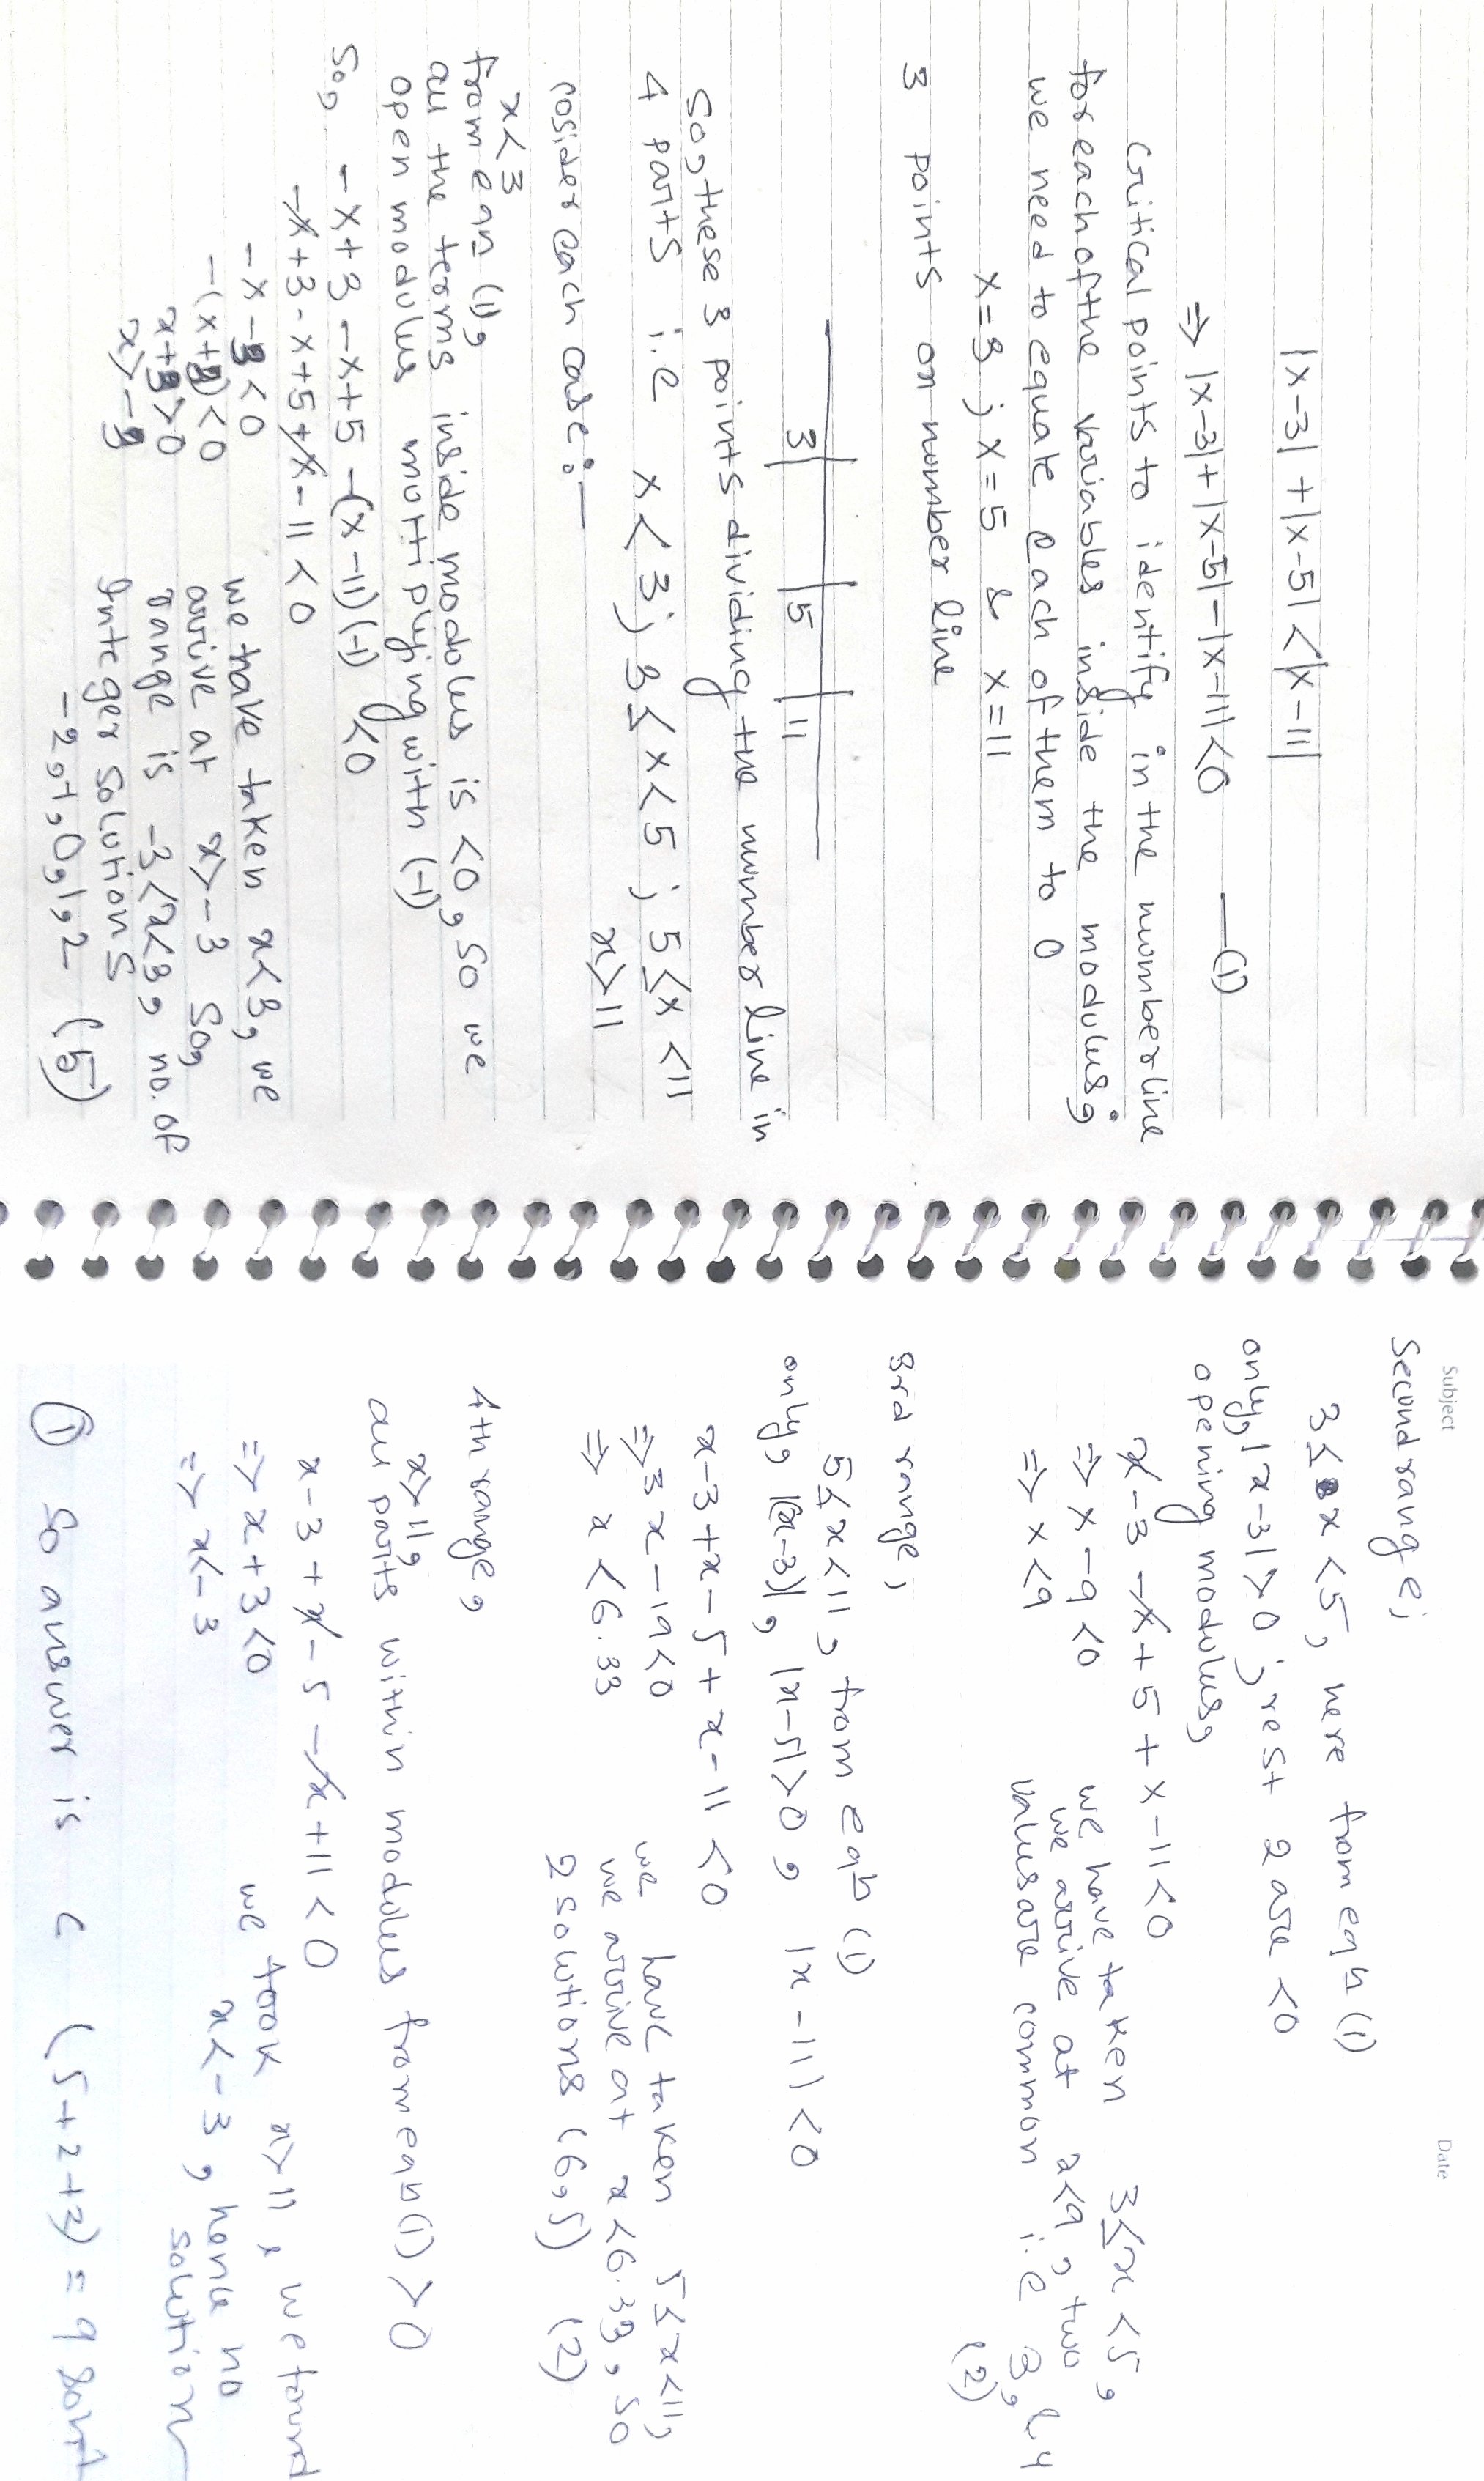 |x-3| + |x-5| < |x-11|
⇒ |x-3| + |x-5| - |x-11| < 0 —(1)
Critical points to identify in the number line
for each of the variables inside the modulus,
we need to equate each of them to 0
x=3 ; x=5 & x=11
3 points on number line
3 5 11
So, these 3 points dividing the number line in
4 parts i.e x<3; 3≤x<5 ; 5≤x<11
x>11
cosider each case:-
x<3
from eqn (1),
all the terms inside modulus is <0, so we
open modulus multiplying with (-1)
So, -x+3-x+5-(x-11)(-1)<0
-x+3-x+5+x-11<0
-x-3<0
-(x+3)<0
x+3>0
x>-3
we have taken x<3, we
arrive at x>-3 so,
range is -3<x<3, no. of
Integer solutions
-2,-1,0,1,2 (5)
Subject
Date
Second range;
3≤x<5, here from eqn (1)
only, |x-3|>0 ; rest 2 are <0
opening modulus,
x-3-x+5+x-11<0
⇒ x-9<0
⇒ x<9
we have taken 3≤x<5,
we arrive at x<9, two
values are common i.e 3, 4
(2)
3rd range,
5≤x<11, from eqn (1)
only, |(x-3)|, |x-5|>0, |x-11|<0
x-3+x-5+x-11<0
⇒ 3x-19<0
⇒ x<6.33
we have taken 5≤x<11,
we arrive at x<6.33, so
2 solutions (6,5) (2)
4th range,
x>11,
all parts within modulus from eqn (1)>0
x-3+x-5-x+11<0
⇒ x+3<0
⇒ x<-3
we took x>11 & we found
x<-3, hence no
solution
① So answer is c (5+2+2) = 9 soln